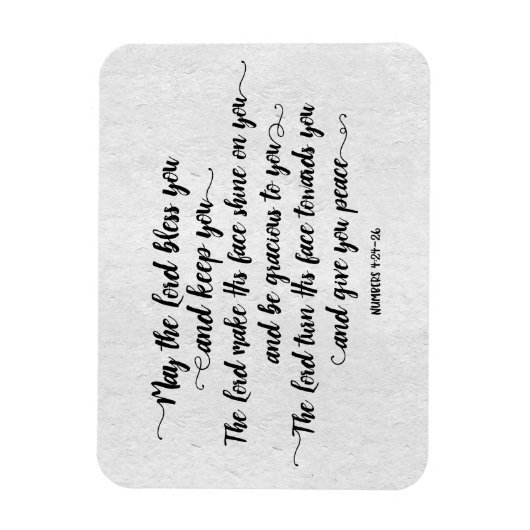 May the Lord bless you
and keep you
The Lord make His face shine on you
and be gracious to you
The Lord turn His face towards you
and give you peace
NUMBERS 4:24-26